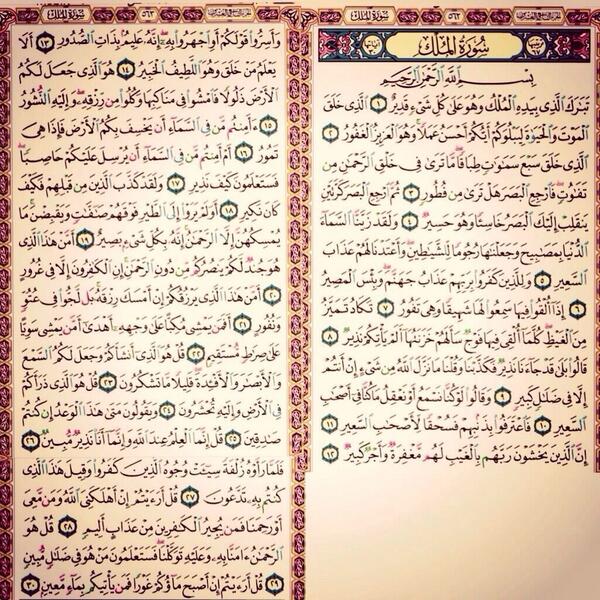 سورة الملك
بسم الله الرحمن الرحيم
تبرك الذى بيده الملك وهو على كل شىء قدير ١ الذى خلق
الموت والحيوة ليبلوكم أيكم أحسن عملا وهو العزيز الغفور ٢
الذى خلق سبع سموت طباقا ما ترى فى خلق الرحمن من
تفوت فارجع البصر هل ترى من فطور ٣ ثم ارجع البصر كرتين
ينقلب إليك البصر خاسئا وهو حسير ٤ ولقد زينا السماء
الدنيا بمصبيح وجعلنها رجوما للشيطين وأعتدنا لهم عذاب
السعير ٥ وللذين كفروا بربهم عذاب جهنم وبئس المصير
٦ إذا ألقوا فيها سمعوا لها شهيقا وهى تفور ٧ تكاد تميز
من الغيظ كلما ألقى فيها فوج سألهم خزنتها ألم يأتكم نذير ٨
قالوا بلى قد جاءنا نذير فكذبنا وقلنا ما نزل الله من شىء إن أنتم
إلا فى ضلل كبير ٩ وقالوا لو كنا نسمع أو نعقل ما كنا فى أصحب
السعير ١٠ فاعترفوا بذنبهم فسحقا لأصحب السعير ١١
إن الذين يخشون ربهم بالغيب لهم مغفرة وأجر كبير ١٢
سورة الملك
وأسروا قولكم أو اجهروا به إنه عليم بذات الصدور ١٣ ألا
يعلم من خلق وهو اللطيف الخبير ١٤ هو الذى جعل لكم
الأرض ذلولا فامشوا فى مناكبها وكلوا من رزقه وإليه النشور
١٥ ءأمنتم من فى السماء أن يخسف بكم الأرض فإذا هى
تمور ١٦ أم أمنتم من فى السماء أن يرسل عليكم حاصبا
فستعلمون كيف نذير ١٧ ولقد كذب الذين من قبلهم فكيف
كان نكير ١٨ أولم يروا إلى الطير فوقهم صفت ويقبضن ما
يمسكهن إلا الرحمن إنه بكل شىء بصير ١٩ أمن هذا الذى
هو جند لكم ينصركم من دون الرحمن إن الكفرون إلا فى غرور
٢٠ أمن هذا الذى يرزقكم إن أمسك رزقه بل لجوا فى عتو
ونفور ٢١ أفمن يمشى مكبا على وجهه أهدى أمن يمشى سويا
على صرط مستقيم ٢٢ قل هو الذى أنشأكم وجعل لكم السمع
والأبصر والأفئدة قليلا ما تشكرون ٢٣ قل هو الذى ذرأكم
فى الأرض وإليه تحشرون ٢٤ ويقولون متى هذا الوعد إن كنتم
صدقين ٢٥ قل إنما العلم عند الله وإنما أنا نذير مبين ٢٦
فلما رأوه زلفة سيئت وجوه الذين كفروا وقيل هذا الذى
كنتم به تدعون ٢٧ قل أرءيتم إن أهلكنى الله ومن معى
أو رحمنا فمن يجير الكفرين من عذاب أليم ٢٨ قل هو
الرحمن ءامنا به وعليه توكلنا فستعلمون من هو فى ضلل مبين
٢٩ قل أرءيتم إن أصبح ماؤكم غورا فمن يأتيكم بماء معين ٣٠